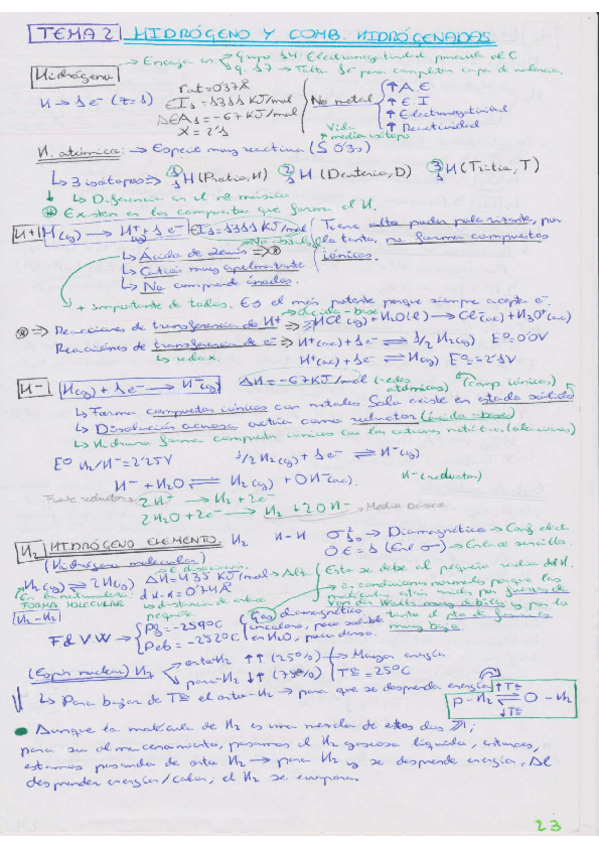 TEMA 2 HIDRÓGENO Y COMB. HIDROGENADAS
Hidrógeno → Encaja en → Grupo 14: Electronegatividad parecida al C
g. 17 → Falta 1e⁻ para completar capa de valencia.
H → 1e⁻ (z=1)
rat=0'37Å
EI₁ = 1311 KJ/mol
ΔEA₁ = -67 KJ/mol
X = 2'1
No metal
↑ A.E
↑ E.I
↑ Electronegatividad
↑ Reactividad
H. atómica: → Especie muy reactiva (≤ 0'3s)
Vida media
↳ 3 isótopos ⇒ ¹₁H (Protio, H) ²₁H (Deuterio, D) ³₁H (Tritio, T)
↳ Diferencia en el nº másico
Existen en los compuestos que forma el H.
H⁺ H(g) → H⁺(g) + 1e⁻ EI₁ = 1311 KJ/mol
Tiene alto poder polarizante, por
lo tanto, no forma compuestos
iónicos.
↳ Ácido de Lewis ⇒
↳ Catión muy polarizante
↳ No comp
+ importante de todos. Es el más potente porque siempre acepta e⁻.
ácido-base
⇒ Reacciones de transferencia de H⁺ ⇒ HCl(g) + H₂O(l) → Cl⁻(ac) + H₃O⁺(ac)
Reacciones de transferencia de e⁻ ⇒ H⁺(ac) + 1e⁻ ⇌ 1/2 H₂(g) E°= 0'0V
↳ redox.
H⁺(ac) + 1e⁻ ⇌ H(g) E°= -2'1V
H⁻ H(g) + 1e⁻ → H⁻(g) ΔH = -67KJ/mol (comp iónicos)
↳ Forma compuestos iónicos con metales Solo existe en estado sólido
↳ Disolución acuosa actúa como reductor (ácido-base)
↳ Hidruro forma compuestos iónicos con los cationes metálicos (alcalinos)
E° H₂/H⁻ = 2'25V 1/2 H₂(g) + 1e⁻ ⇌ H⁻(g)
H⁻ + H₂O ⇌ H₂(g) + OH⁻(ac) H⁻ (reductor)
Fuente reductora: 2H⁻ → H₂ + 2e⁻
2H₂O + 2e⁻ → H₂ + 2OH⁻ → Medio básico
H₂ HIDRÓGENO ELEMENTO. H₂ H-H σ²₁ₛ → Diamagnético → Conf. elect.
(Hidrógeno molecular) OE = 1 (Enl σ) → Enlace sencillo.
E disociación
H₂(g) → 2H(g) ΔH = 435 KJ/mol → Alt.
Esto se debe al pequeño radio del H.
En la naturaleza:
FORMA MOLECULAR
H₂-H₂
d H-H = 0'74Å
↳ distancia de enlace
pequeña
en condiciones normales porque las
moléculas están unidas por fuerzas de
Van der Waals muy débiles y por lo
tanto el pto de
muy bajo.
F.d V.W → Pf = -259°C
Peb = -252°C
Gas diamagnético
incoloro, poco soluble
en H₂O, poco denso.
(Espín nuclear) H₂
orto-H₂ ↑↑ (25%) → Mayor energía
para-H₂ ↑↓ (75%) Tª = 25°C
↳ Para bajar de Tª el orto-H₂ → para que se desprenda energía
↑Tª
p-H₂ ⇌ o-H₂
↓Tª
Aunque la molécula de H₂ es una mezcla de estos dos;
para su almacenamiento, pasamos el H₂ gaseoso líquido, entonces,
estamos pasando de orto H₂ → para H₂ y se desprende energía. Al
desprender energía/calor; el H₂ se evapora.
23